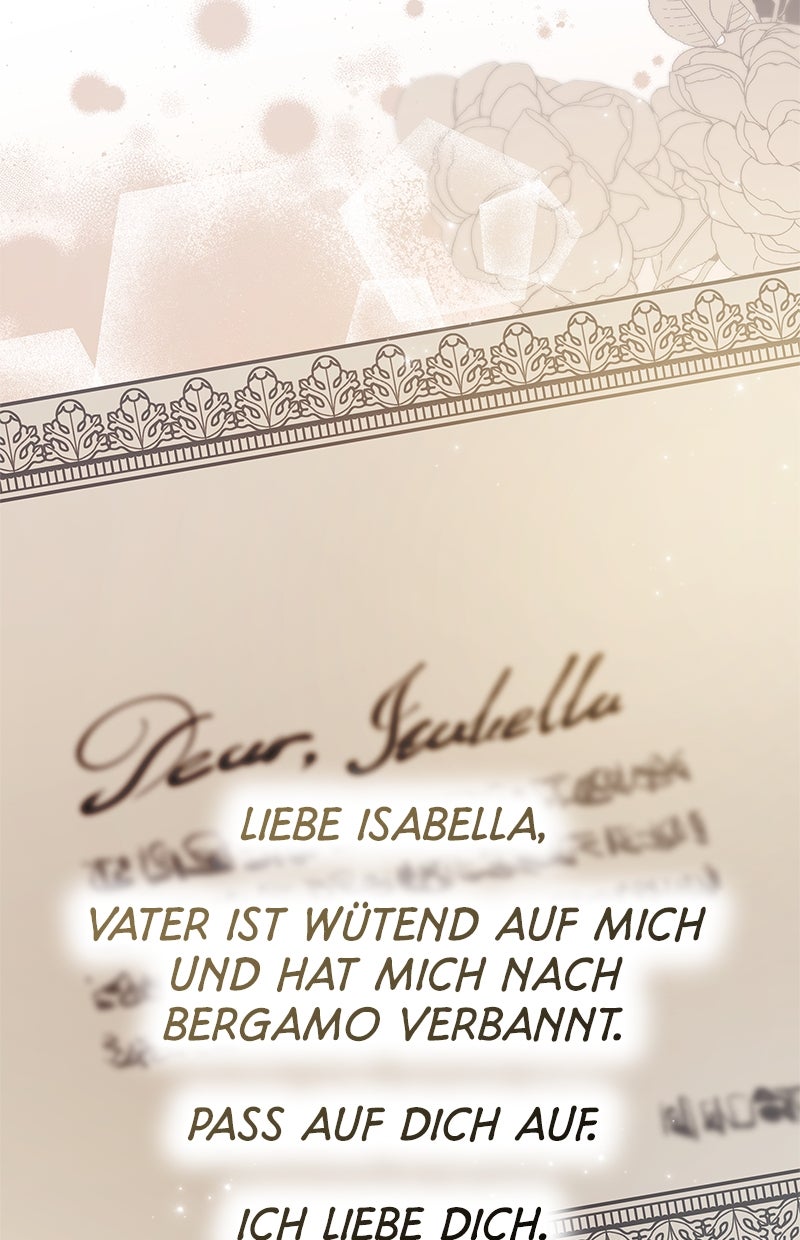 Dear, Isabella
LIEBE ISABELLA,
VATER IST WÜTEND AUF MICH
UND HAT MICH NACH
BERGAMO VERBANNT.
PASS AUF DICH AUF.
ICH LIEBE DICH.